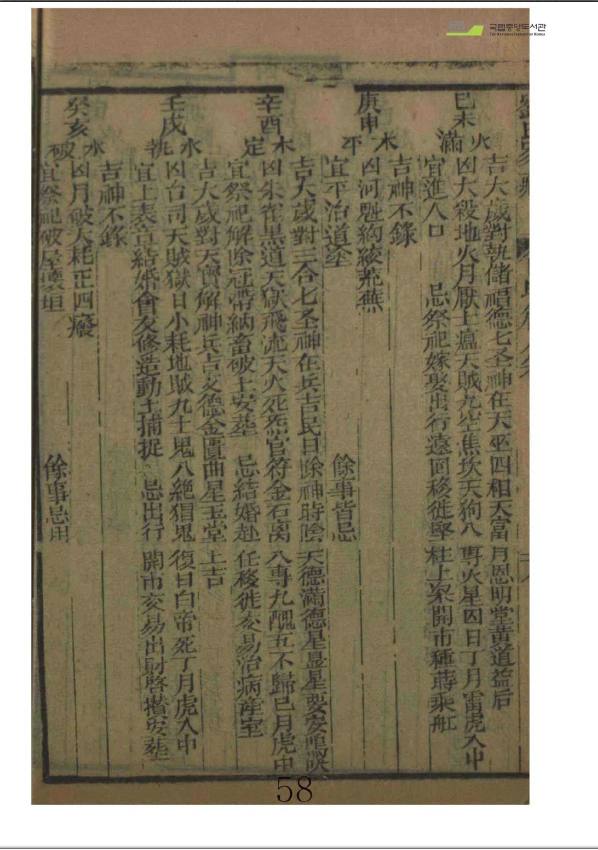 국립중앙도서관
THE NATIONAL LIBRARY OF KOREA
己未 火 滿
吉大歲對執儲福德七圣神在天巫四相天富月恩明堂黃道益后
凶大殺地火月厭土瘟天賊九空焦坎天狗八專火星囚日丁月雷虎入中
宜進人口 忌祭祀嫁娶出行遠回移徙竪柱上梁開市種蒔乘舡
庚申 木 平
吉神不錄
凶河魁
宜平治道塗 餘事皆忌
辛酉 木 定
吉大歲對三合七圣神在兵吉民日除神時陰天德滿德星显星要安鳴吠
凶朱雀黑道天獄飛流天火死炁官符金石离八專九醜五不歸巳月虎中
宜祭祀解除冠帶納畜破土安葬 忌結婚赴任移徙交易治病產室
壬戌 水 執
吉大歲對天寶解神兵吉文德金匱曲星玉堂上吉
凶台司天賊獄日小耗地賊九土鬼八絶猖鬼復日白帝死丁月虎入中
宜上表章結婚會友修造動土捕捉 忌出行開市交易出財啓攢安葬
癸亥 水 破
吉神不錄
凶月破大耗正四癈
宜祭祀破屋壞垣 餘事忌用
58